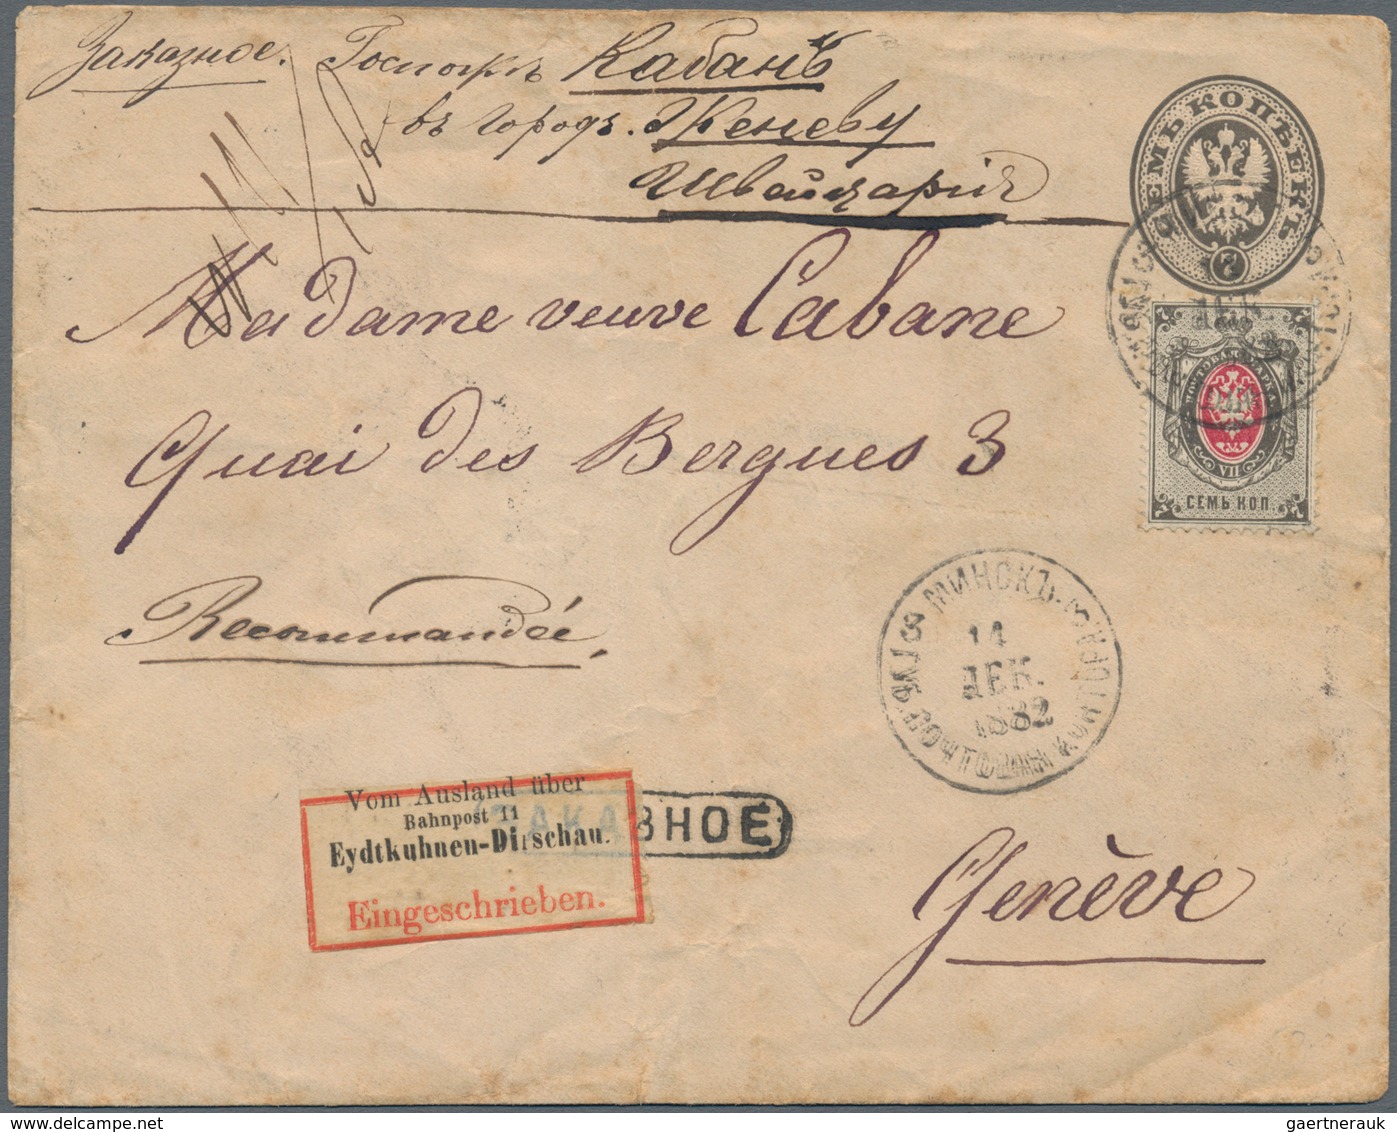 Заказное. Госпожѣ Кабанъ
въ городъ. Женеву
Швейцарія
СЕМЬ КОПѢЕКЪ
7
Madame veuve Cabane
VII
СЕМЬ КОП.
Quai des Bergues 3
Recommandée
МИНСКЪ
14
ДЕК.
1882
Vom Ausland über
Bahnpost 11
Eydtkuhnen-Dirschau.
Eingeschrieben.
ЗАКАЗНОЕ
Genève
gaertnerauk